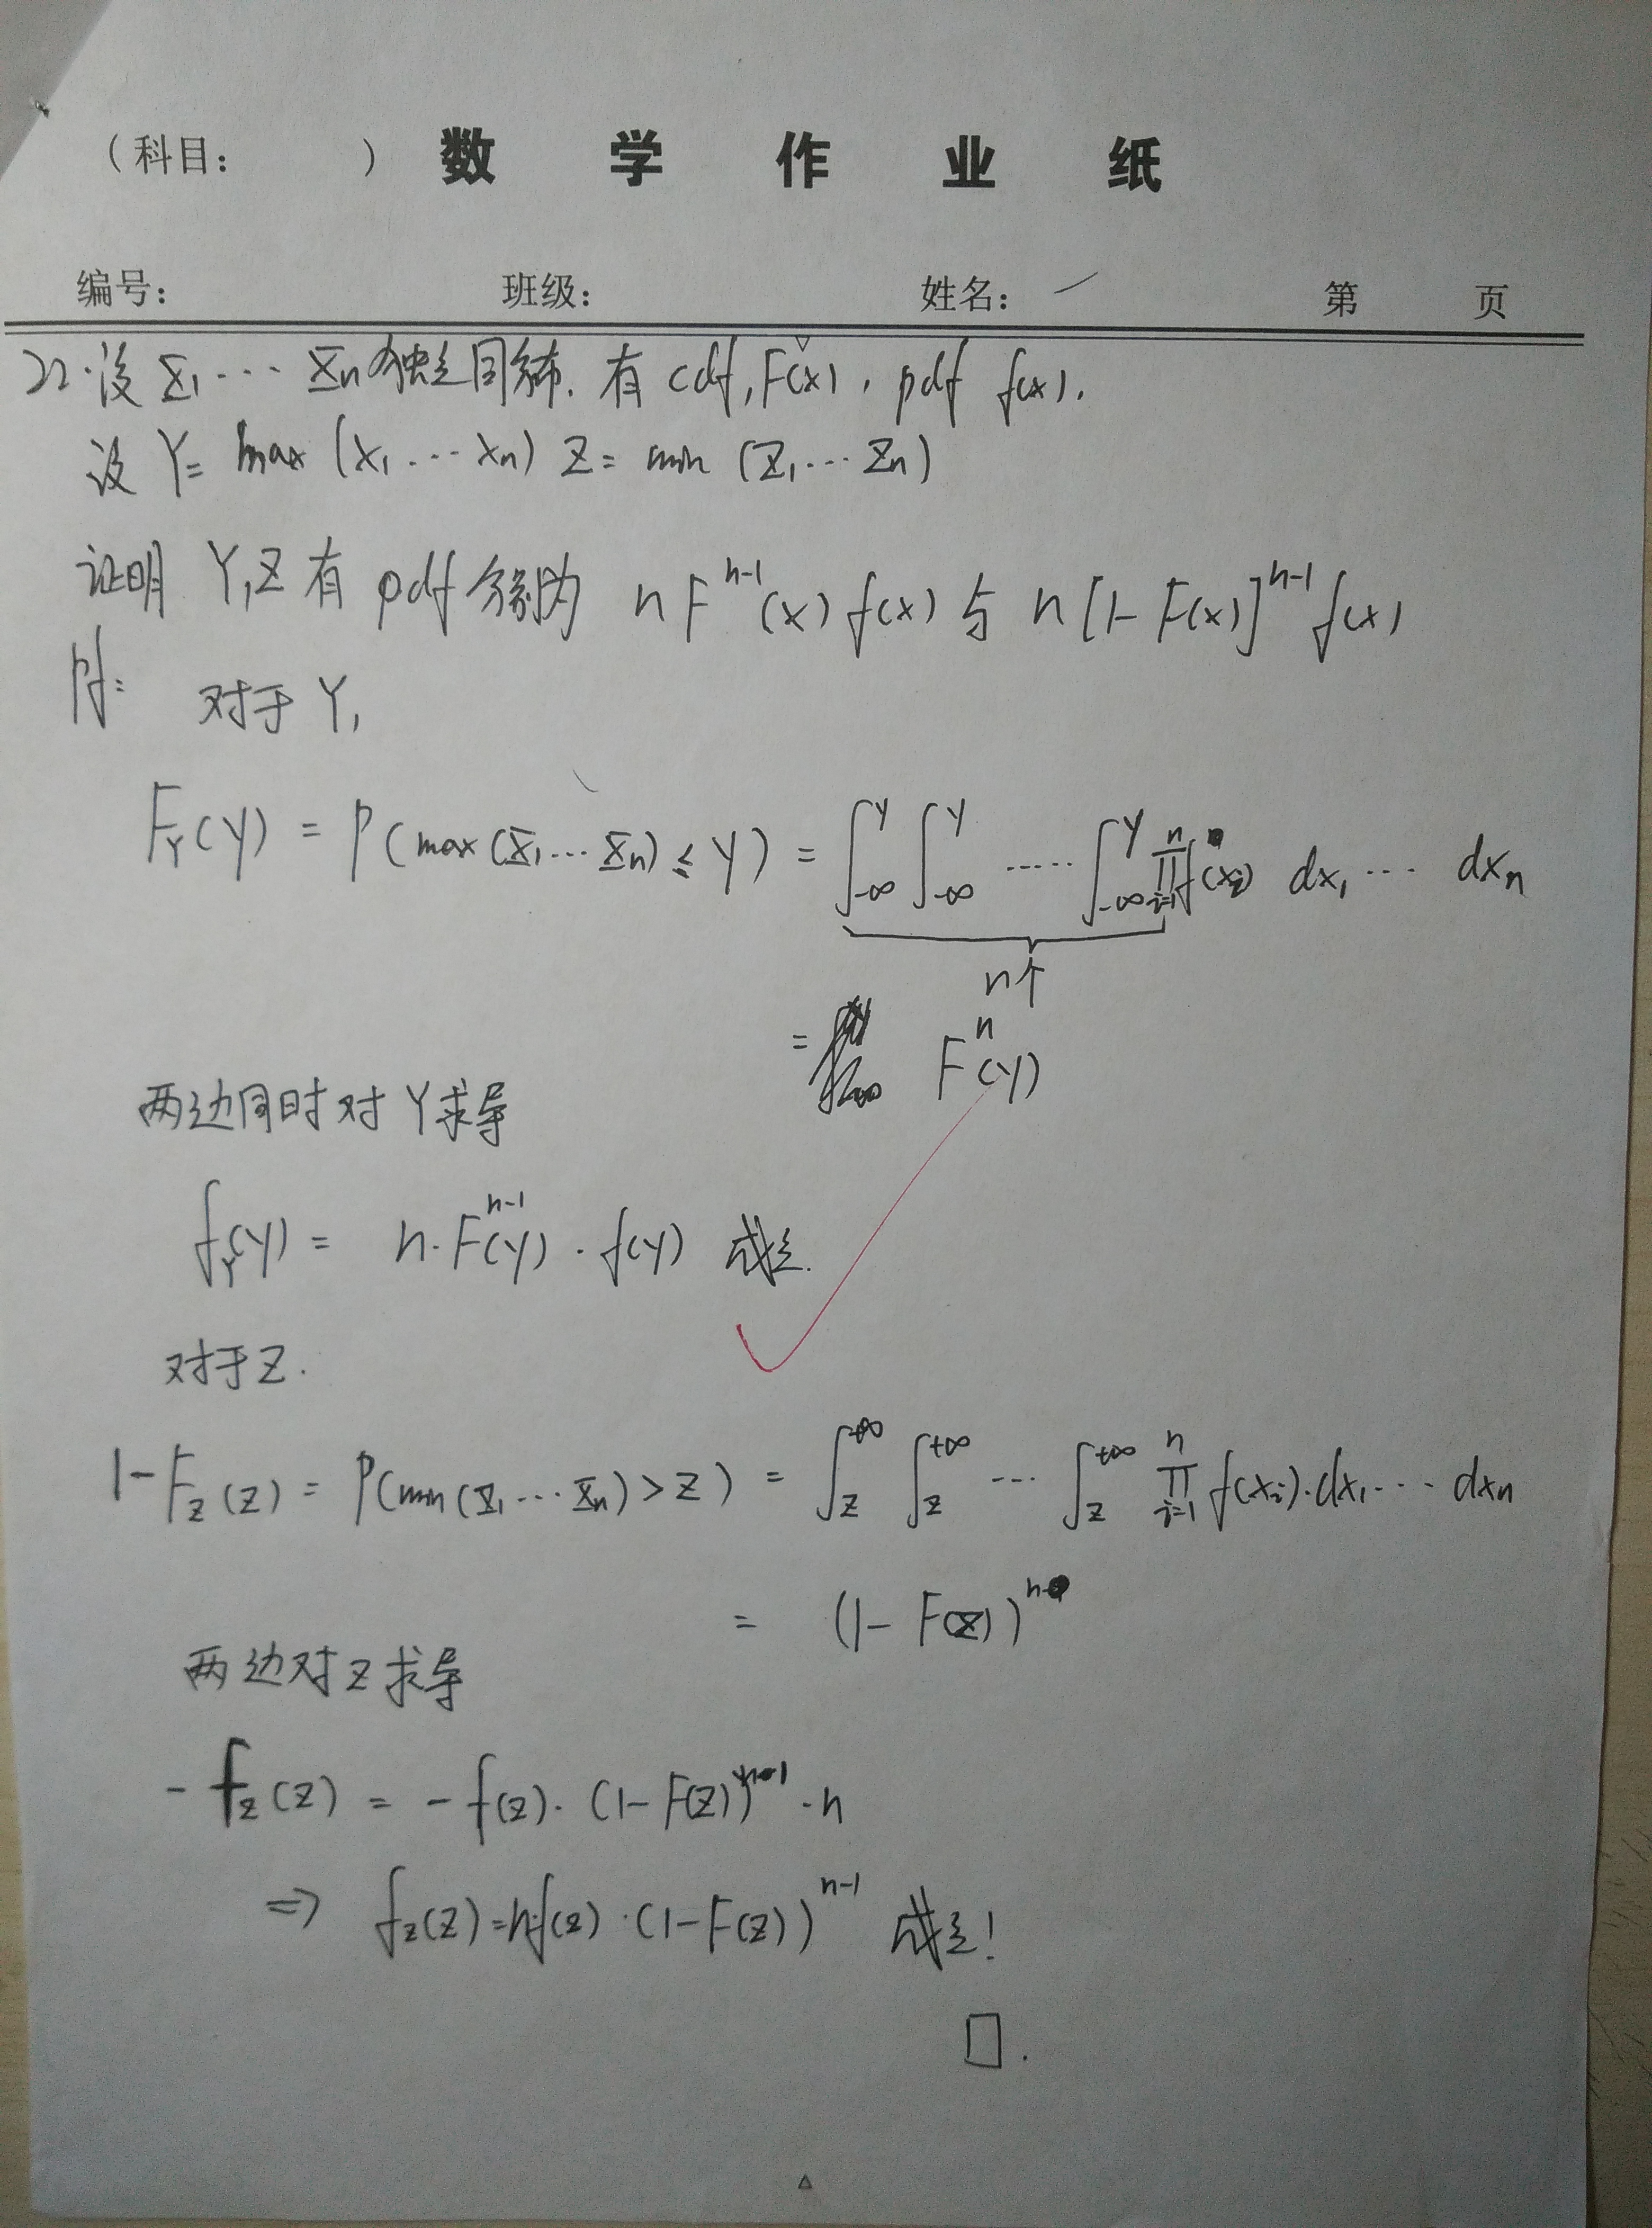 （科目：　　　）数 学 作 业 纸
编号：　　　班级：　　　姓名：　　　第　　页
22.设 X₁⋯Xₙ独立同分布. 有 cdf, F(x), pdf f(x).
设 Y= max (x₁⋯xₙ) Z= min (Z₁⋯Zₙ)
证明 Y,Z 有 pdf 分别为 nFⁿ⁻¹(x)f(x) 与 n[1-F(x)]ⁿ⁻¹f(x)
pf: 对于 Y,
F_Y(y) = P(max(X₁⋯Xₙ) ≤ y) = ∫_{-∞}^{y} ∫_{-∞}^{y} ⋯⋯ ∫_{-∞}^{y} ∏_{i=1}^{n} f(x_i) dx₁⋯ dxₙ
n个
= Fⁿ(y)
两边同时对 Y求导
f_Y(y) = n·Fⁿ⁻¹(y)·f(y) 成立.
对于Z.
1-F_Z(z) = P(min(X₁⋯Xₙ)>z) = ∫_{z}^{+∞} ∫_{z}^{+∞} ⋯ ∫_{z}^{+∞} ∏_{i=1}^{n} f(x_i)·dx₁⋯ dxₙ
= (1-F(z))ⁿ
两边对 z 求导
-f_Z(z) = -f(z)·(1-F(z))ⁿ⁻¹·n
⇒ f_Z(z)=n·f(z)·(1-F(z))ⁿ⁻¹ 成立!
□.